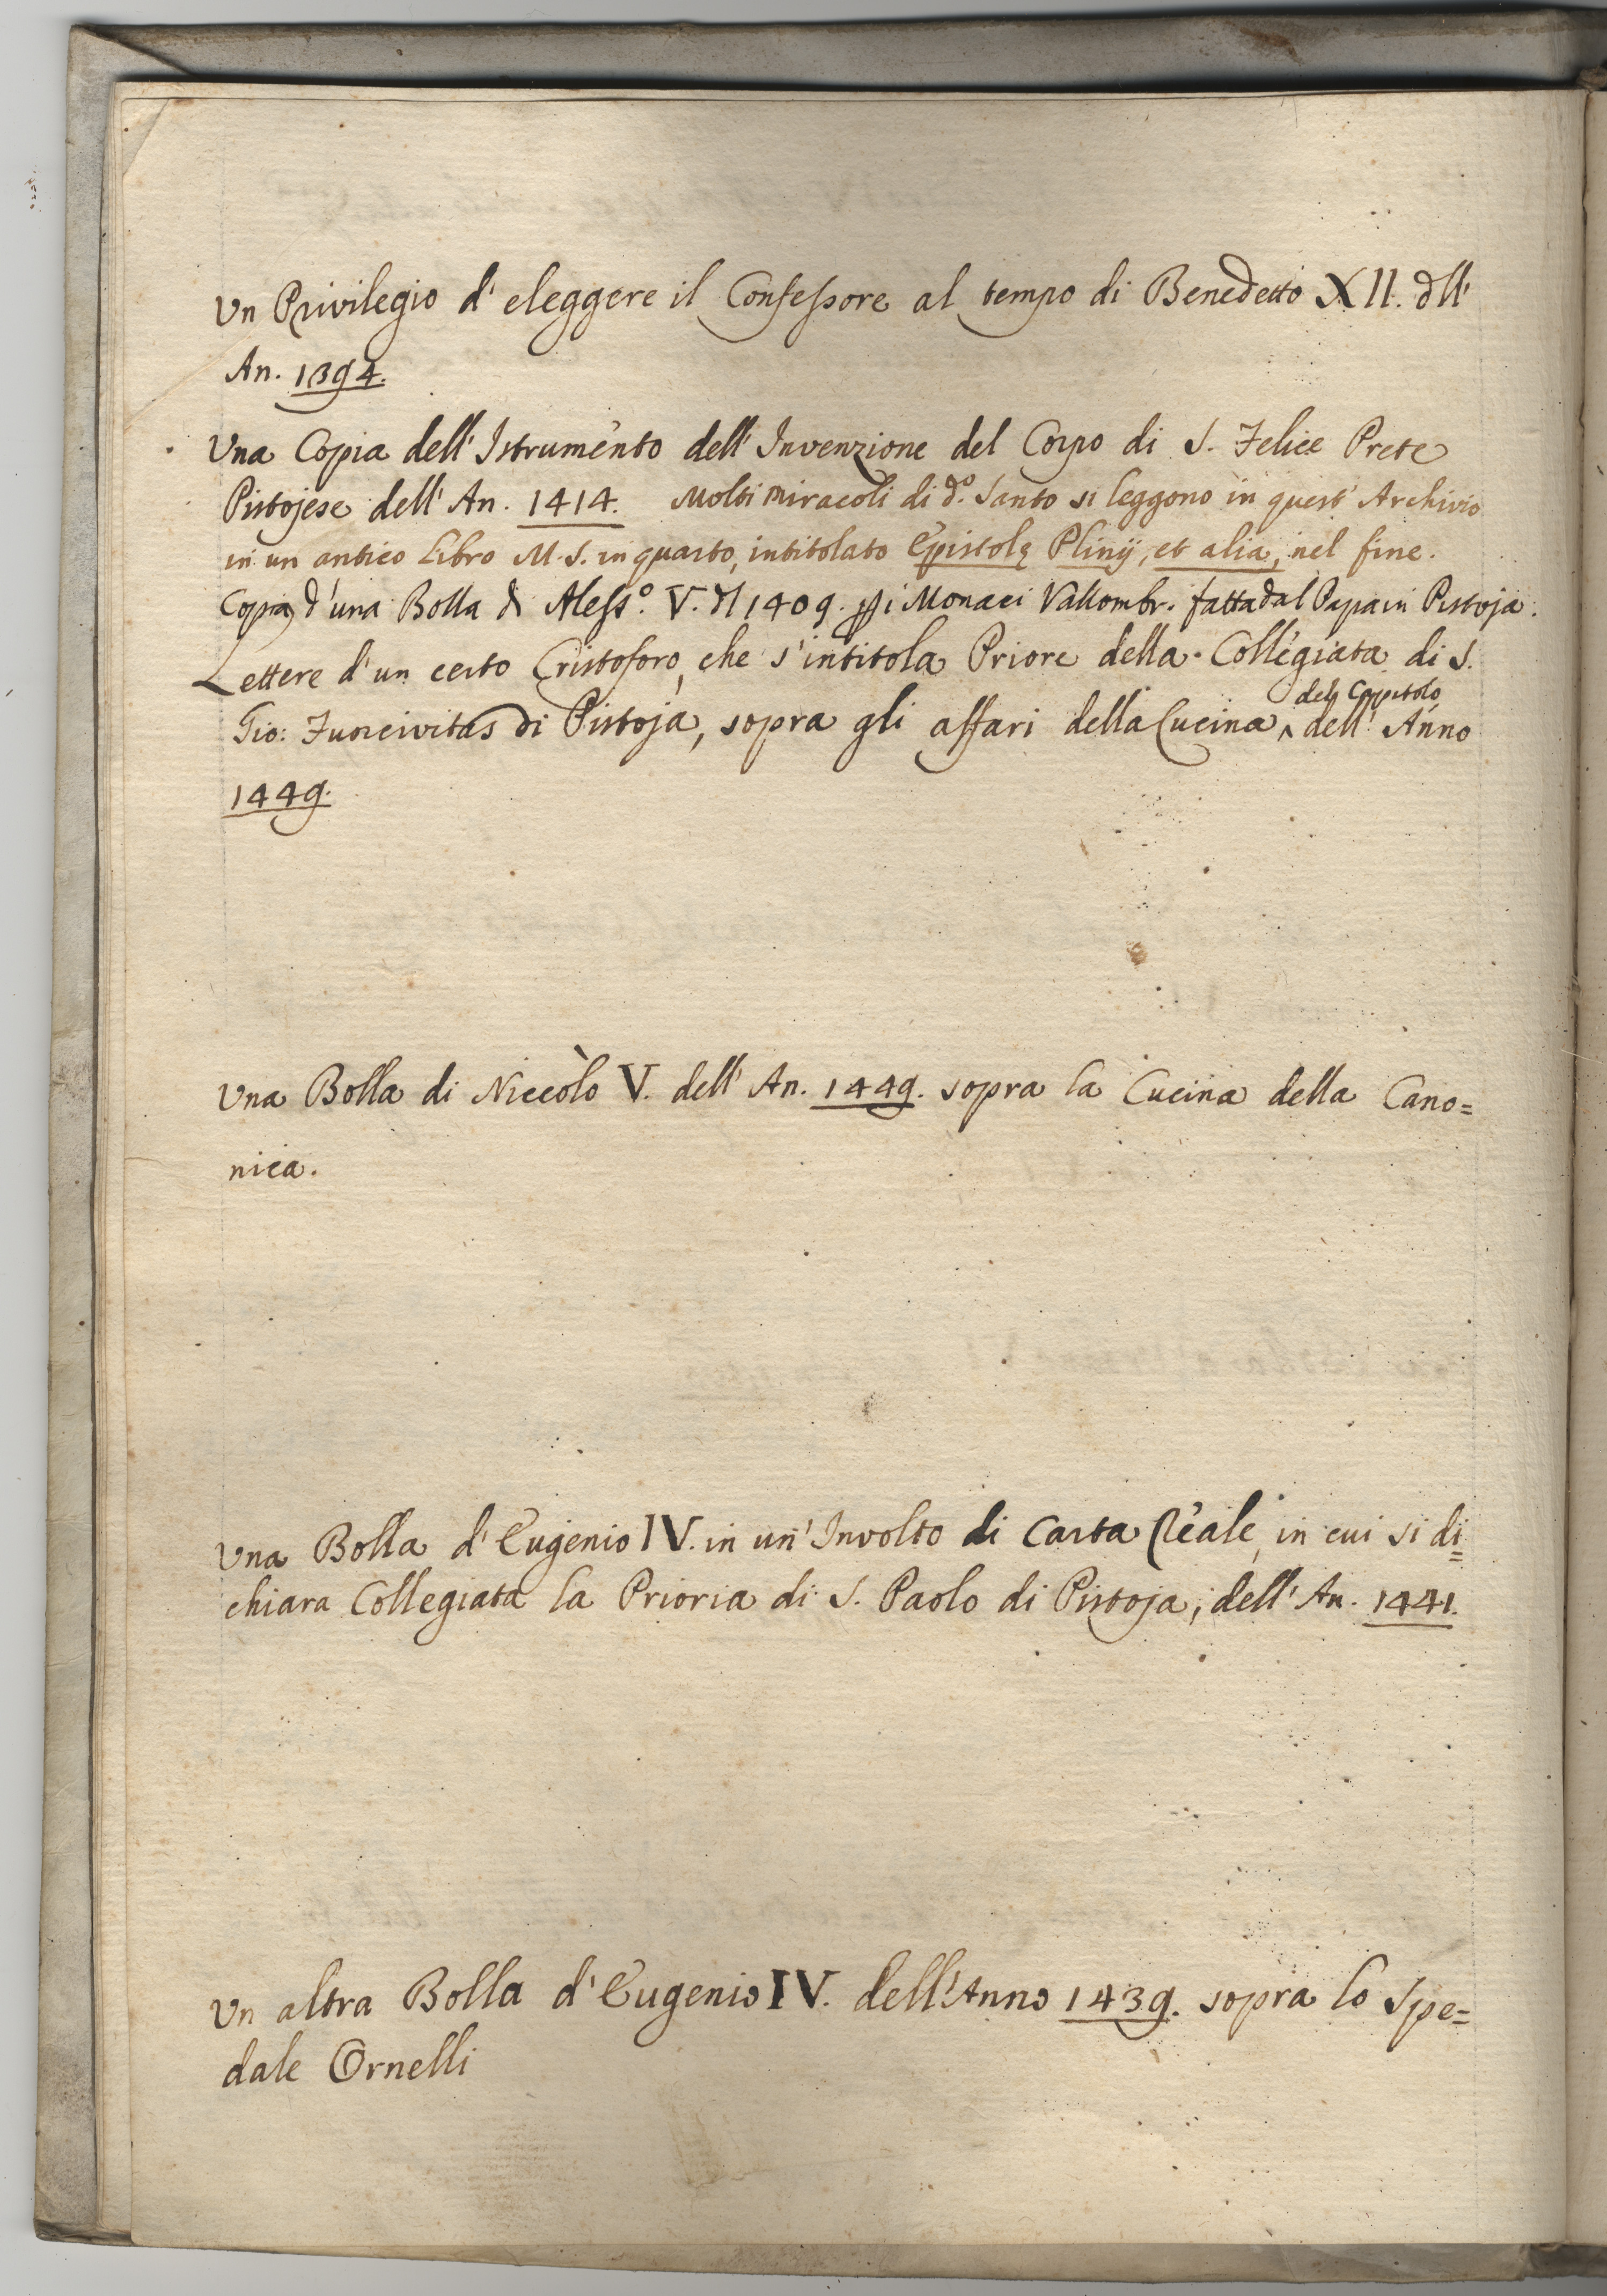 Un Privilegio d' eleggere il Confessore al tempo di Benedetto XII. dll'
An. 1394.
Una Copia dell' Istrumento dell' Invenzione del Corpo di S. Felice Prete
Pistojese dell' An. 1414. Molti miracoli di do. Santo si leggono in quest' Archivio
in un antico Libro M.S. in quarto, intitolato Epistolę Plinij, et alia, nel fine.
Copia d' una Bolla di Aless.o V. dl 1409. pp i Monaci Vallombr. fatta dal Papa in Pistoja.
Lettere d' un certo Cristoforo, che s' intitola Priore della Collegiata di S.
del Capitolo
Gio: Forcivitas di Pistoja, sopra gli affari della Cucina ^ dell' Anno
1449.
Una Bolla di Niccòlo V. dell' An. 1449. sopra la Cucina della Cano=
nica.
Una Bolla d' Eugenio IV. in un' Involto di Carta Reale, in cui si di=
chiara Collegiata la Prioria di S. Paolo di Pistoja, dell' An. 1441.
Un altra Bolla d' Eugenio IV. dell' Anno 1439. sopra lo Spe=
dale Ornelli